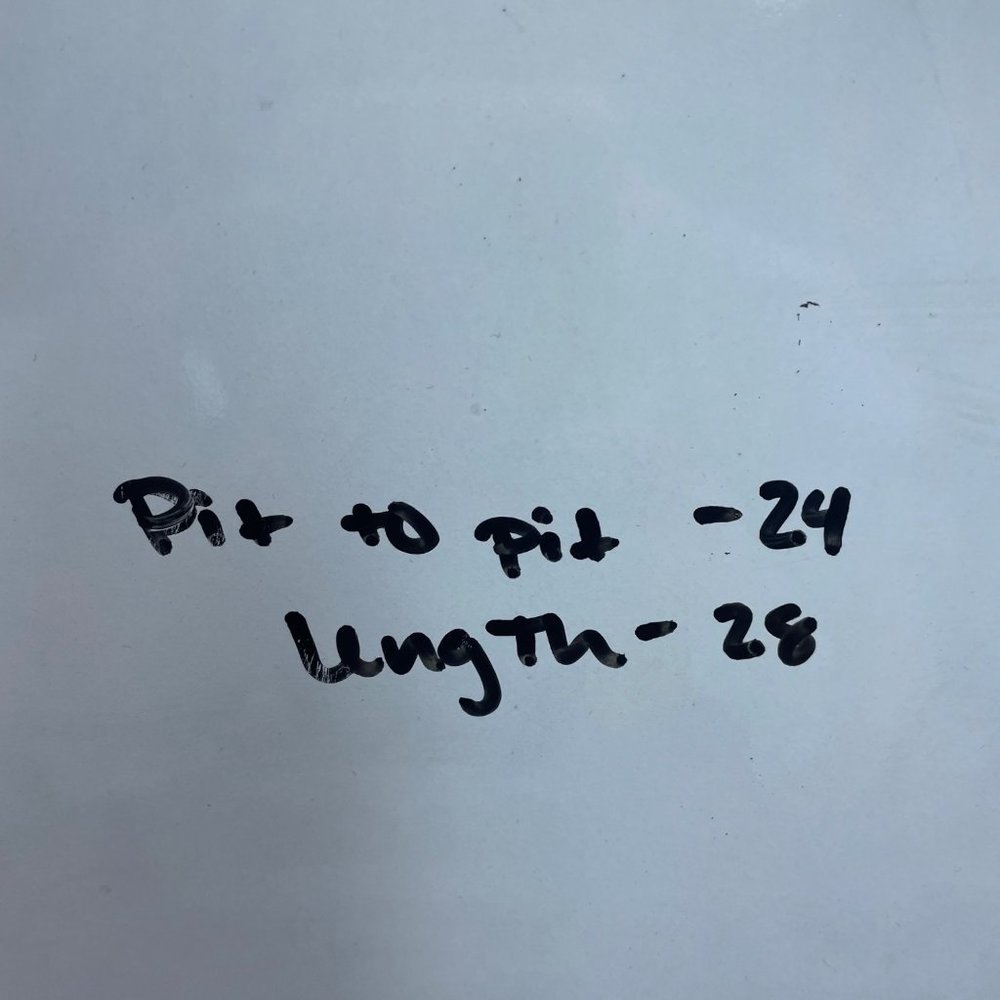 Pit to pit - 24
length - 28